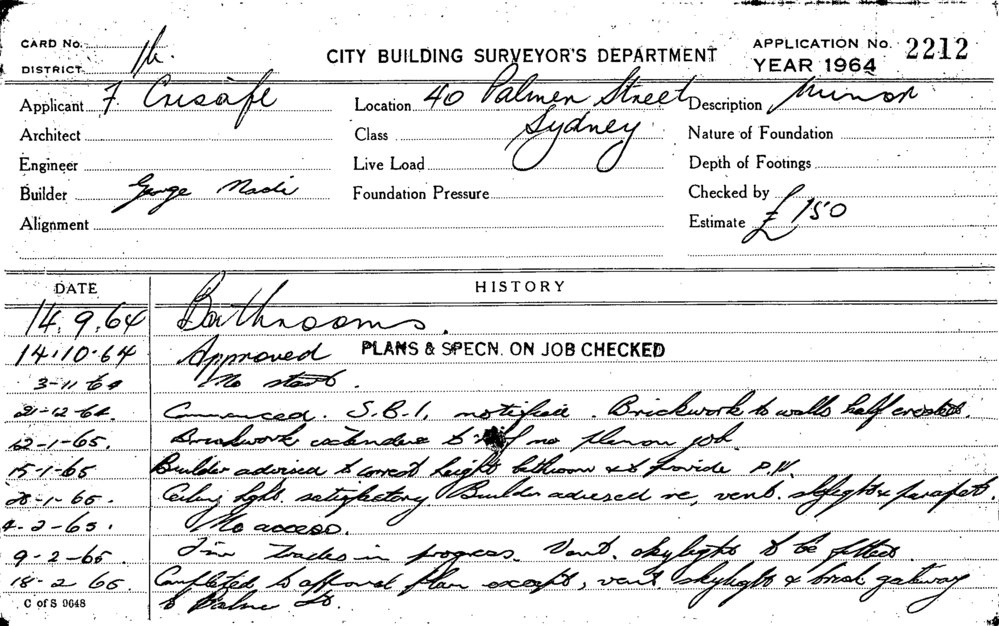 CARD No.
DISTRICT
CITY BUILDING SURVEYOR'S DEPARTMENT
APPLICATION No. 2212
YEAR 1964
Applicant F Crisafe Location 40 Palmer Street Description Minor
Architect Class Sydney Nature of Foundation
Engineer Live Load Depth of Footings
Builder George Foundation Pressure Checked by
Alignment Estimate £150
DATE HISTORY
14.9.64 Bathrooms.
14.10.64 Approved PLANS & SPECN. ON JOB CHECKED
3-11-64 No start.
21-12-64. Commenced. S.B.I. notified. Brickwork to walls half erected.
12-1-65. Brickwork extended to no plan on job
15-1-65 Builder advised to correct height bathroom & to provide P.W.
-1-65. Ceiling hght. satisfactory Builder advised re, vent. skylight & parapet.
4-2-65. No access.
9-2-65 Fin trades in progress. Vent. skylight to be fitted.
18-2-65 Completed to approval plan except, vent skylight & brick gateway
to Palmer St.
C of S 9648